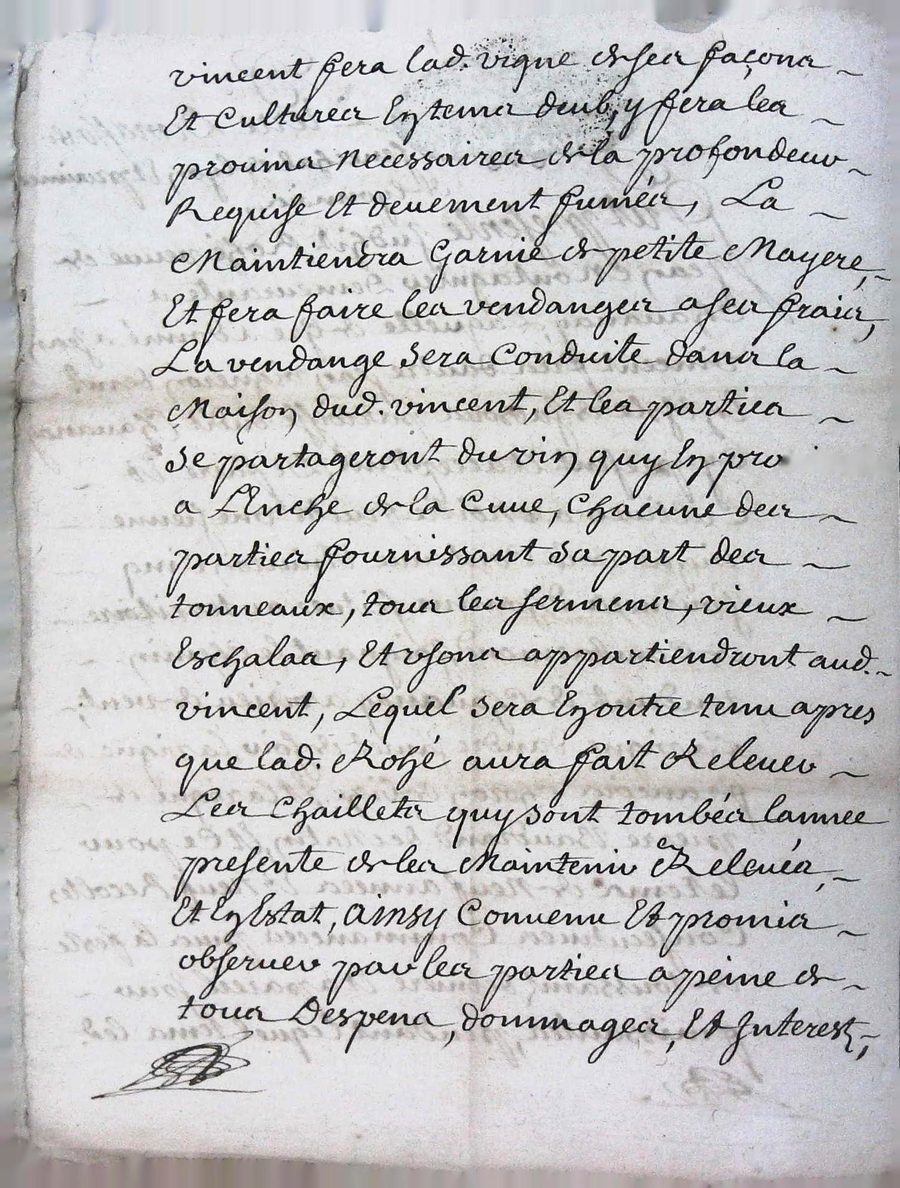 vincent fera lad. vigne de ses façons
Et Cultures En tems deub, y fera les
prouins necessaires de la profondeur
Requise Et deuement fumés, La
Maintiendra Garnie de petite Mayere,
Et fera faire les vendanges a ses frais,
La vendange sera Conduite dans la
Maison dud. vincent, Et les parties
se partageront du vin quy En pro
a L'Enche de la Cuue, Chacune des
parties fournissant sa part des
tonneaux, tous les sermens, vieux
Eschalas, Et vsons appartiendront aud.
vincent, Lequel sera En outre tenu apres
que lad. Rohé aura fait Releuer
Les Chaillets quy sont tombés lannee
presente de les Maintenir Releués,
Et En Estat, ainsy Conuenu Et promis
obseruer par les parties a peine de
tous Despens, dommages, Et Interest,